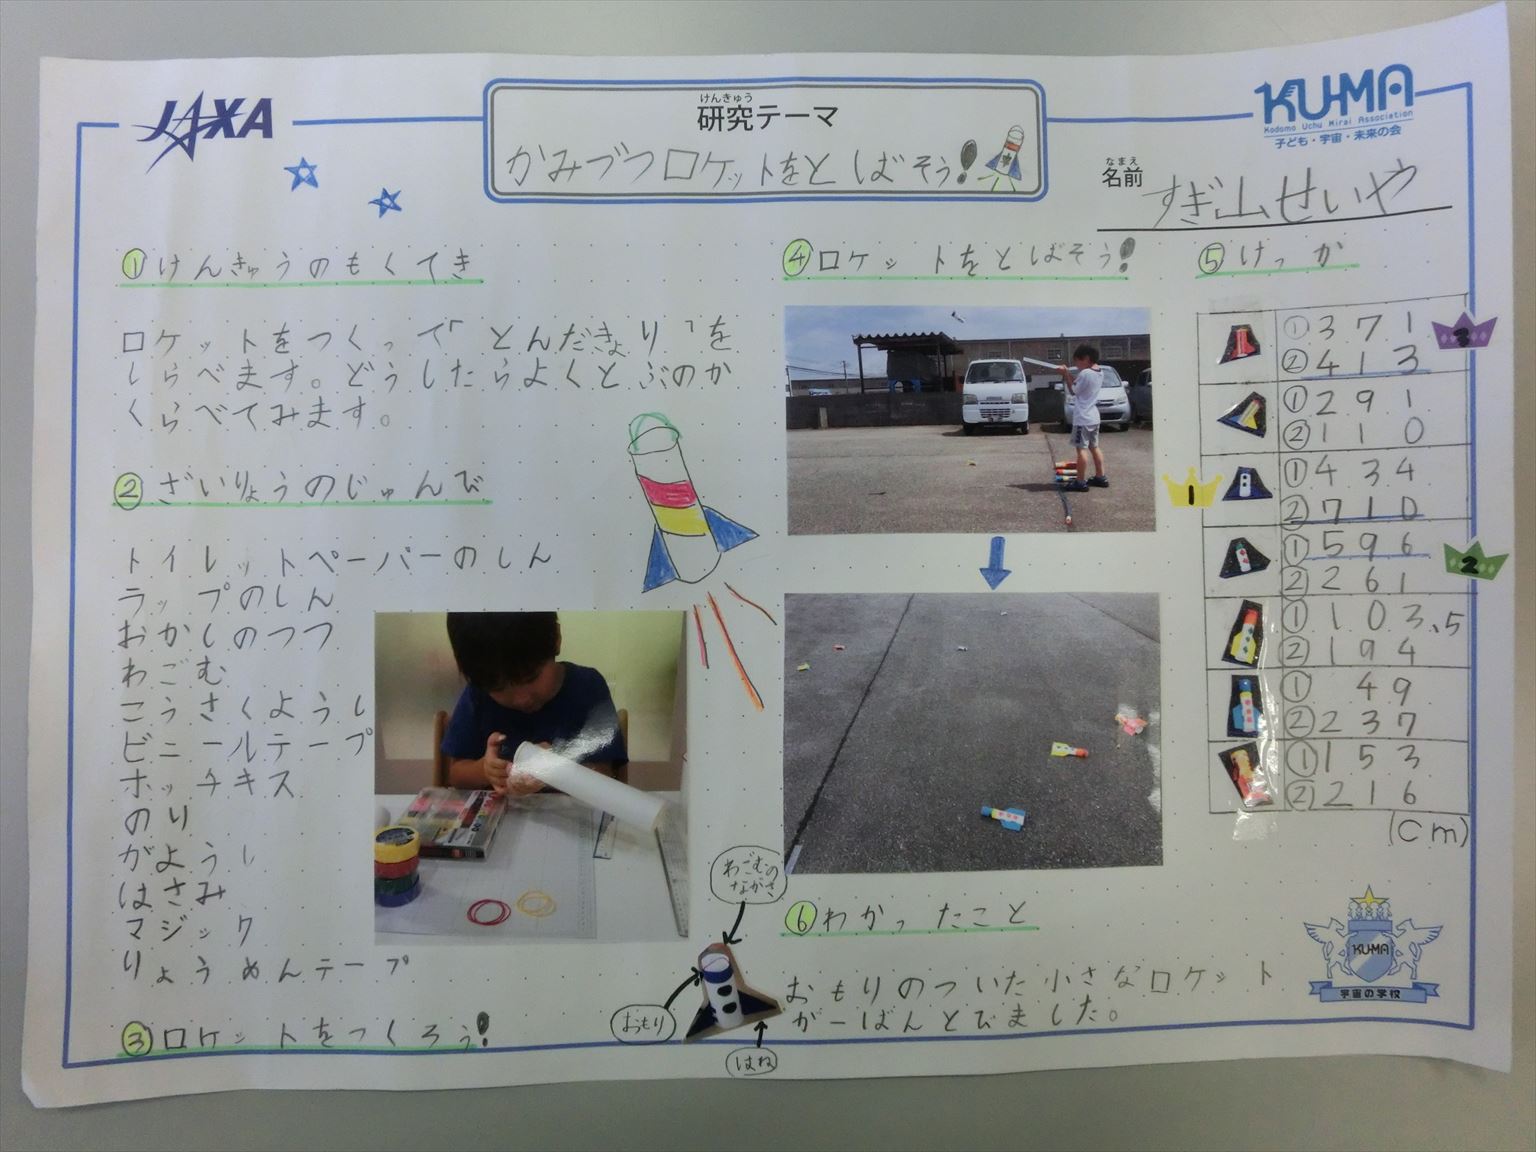 JAXA
けんきゅう
研究テーマ
かみづつロケットをとばそう!
KU-MA
Kodomo Uchu Mirai Association
子ども・宇宙・未来の会
なまえ
名前 すぎ山せいや
①けんきゅうのもくてき
ロケットをつくって「とんだきょり」を
しらべます。どうしたらよくとぶのか
くらべてみます。
②ざいりょうのじゅんび
トイレットペーパーのしん
ラップのしん
おかしのつつ
わごむ
こうさくようし
ビニールテープ
ホッチキス
のり
がようし
はさみ
マジック
りょうめんテープ
③ロケットをつくろう!
わごむの
ながさ
おもり
はね
④ロケットをとばそう!
⑤けっか
①371
②413
3
①291
②110
1
①434
②710
①596
2
②261
①103.5
②194
①49
②237
①153
②216
(cm)
⑥わかったこと
おもりのついた小さなロケット
がーばんとびました。
KU-MA
宇宙の学校